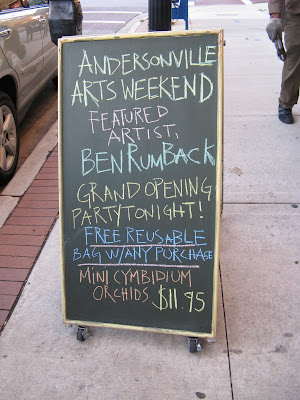 ANDERSONVILLE
ARTS WEEKEND
FEATURED
ARTIST,
BEN RUMBACK
GRAND OPENING
PARTY TONIGHT!
FREE REUSABLE
BAG W/ANY PURCHASE
MINI CYMBIDIUM
ORCHIDS $11.95